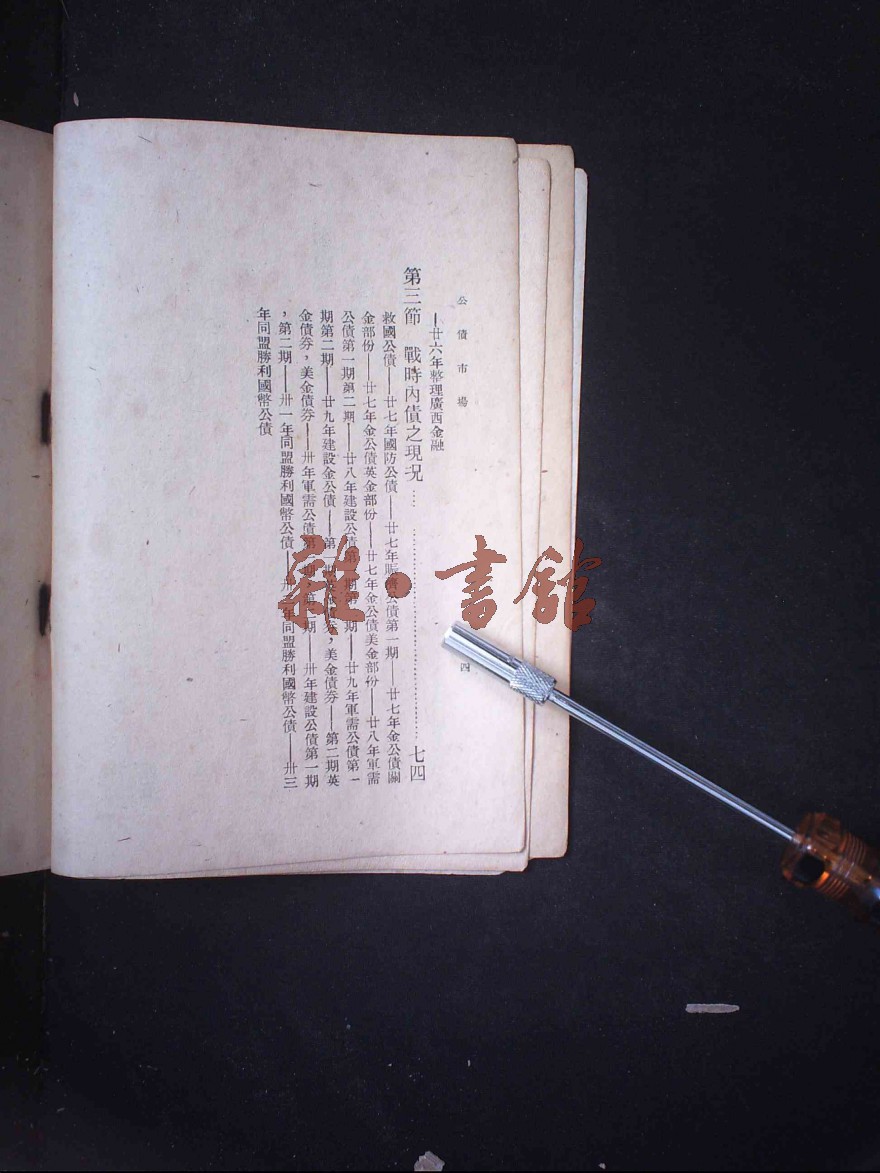 公債市場
四
—廿六年整理廣西金融
第三節 戰時內債之現况……七四
救國公債——廿七年國防公債——廿七年賑濟公債第一期——廿七年金公債關
金部份——廿七年金公債英金部份——廿七年金公債美金部份——廿八年軍需
公債第一期第二期——廿八年建設公債第一期第二期——廿九年軍需公債第一
期第二期——廿九年建設金公債——第一期英金債券，美金債券——第二期英
金債券，美金債券——卅年軍需公債第一期第二期——卅年建設公債第一期
，第二期——卅一年同盟勝利國幣公債——卅年同盟勝利國幣公債——卅三
年同盟勝利國幣公債
雜·書館